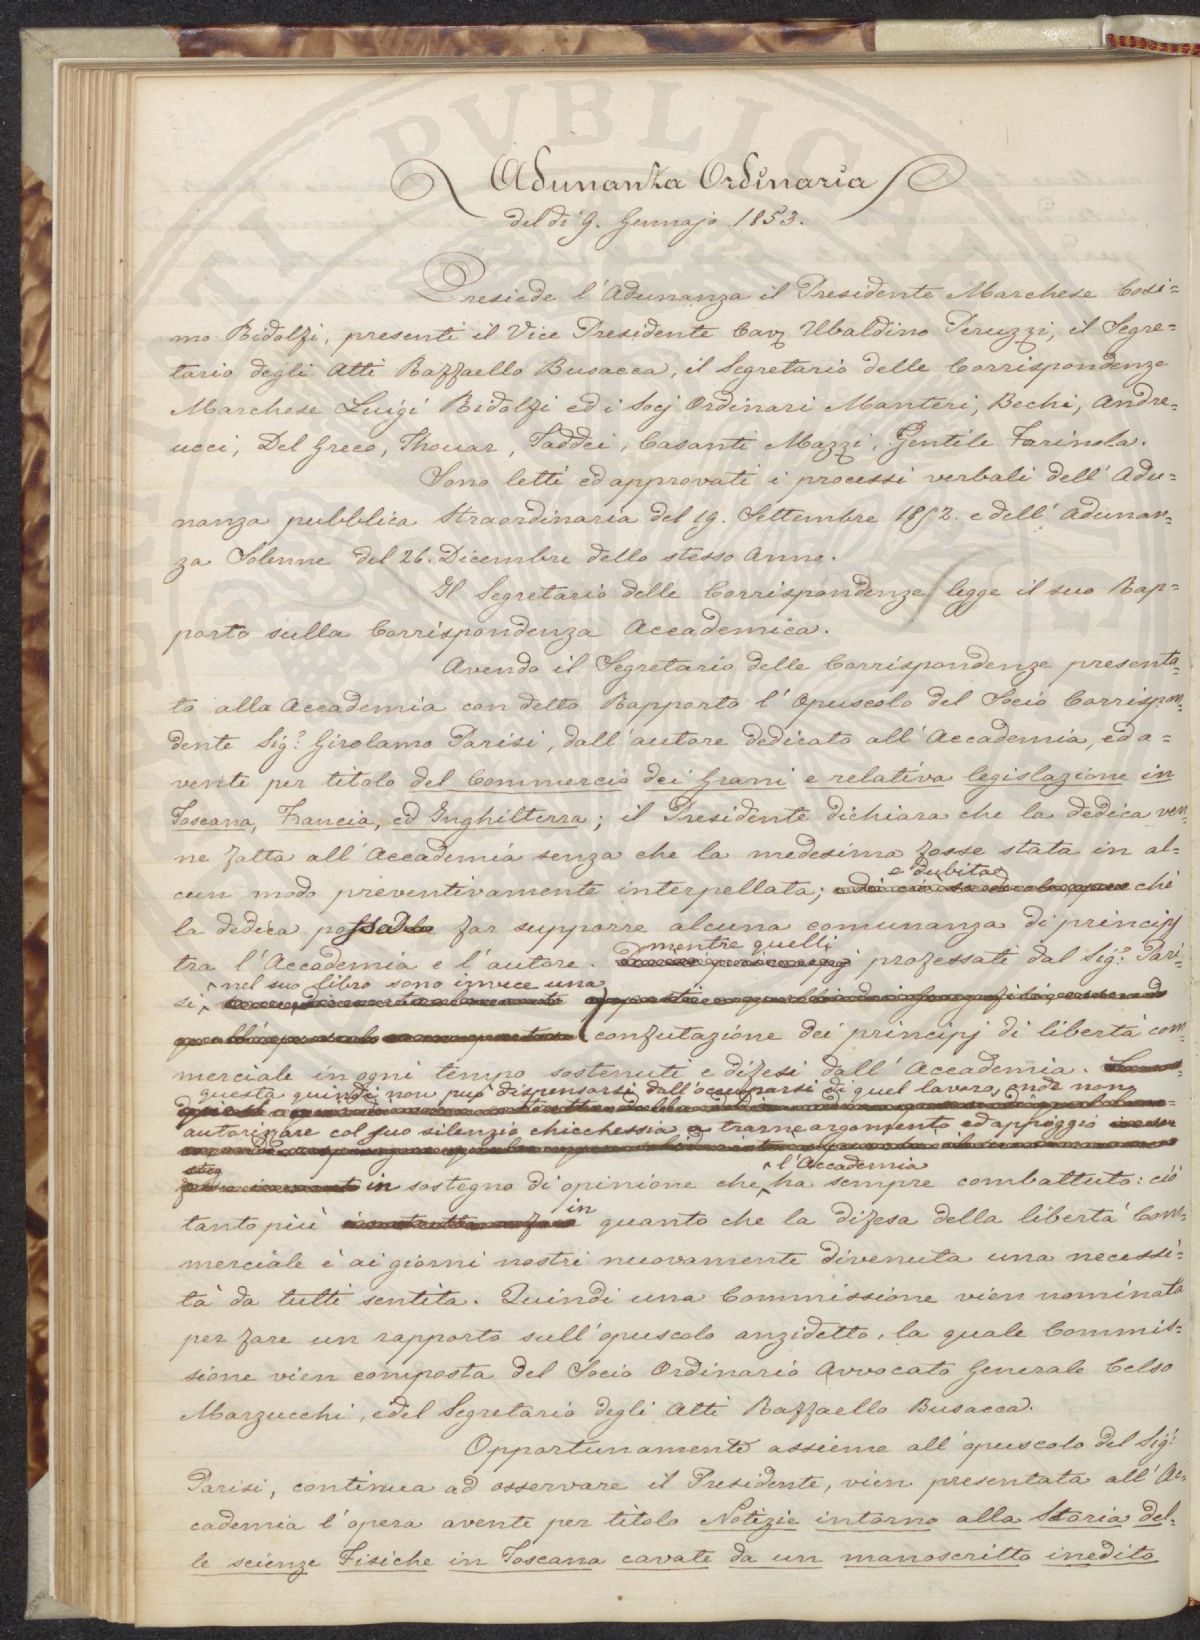 Adunanza Ordinaria
del dì 9. Gennajo 1853.
Presiede l'Adunanza il Presidente Marchese Cosi=
mo Ridolfi, presenti il Vice Presidente Cav. Ubaldino Peruzzi, il Segre=
tario degli Atti Raffaello Busacca, il Segretario delle Corrispondenze
Marchese Luigi Ridolfi ed i Socj Ordinari Manteri, Bechi, Andre=
ucci, Del Greco, Thouar, Taddei, Casanti Mazzi, Gentile Farinola.
Sono letti ed approvati i processi verbali dell'Adu=
nanza pubblica Straordinaria del 19. Settembre 1852. e dell'Adunan=
za Solenne del 26. Dicembre dello stesso Anno.
Il Segretario delle Corrispondenze legge il suo Rap=
porto sulla Corrispondenza Accademica.
Avendo il Segretario delle Corrispondenze presenta=
to alla Accademia con detto Rapporto l'Opuscolo del Socio Corrispon=
dente Sig.r Girolamo Parisi, dall'autore dedicato all'Accademia, ed a=
vente per titolo del Commercio dei Grani e relativa legislazione in
Toscana, Francia, ed Inghilterra; il Presidente dichiara che la dedica ven=
ne fatta all'Accademia senza che la medesima fosse stata in al=
e dubitao
cun modo preventivamente interpellata; chè
la dedica possa far supporre alcuna comunanza di principj
mentre quelli
tra l'Accademia e l'autore. professati dal Sig.r Pari=
nel suo libro sono invece una
si, confutazione dei principj di libertà com=
merciale in ogni tempo sostenuti e difesi dall'Accademia.
questa quindi non può dispensarsi dall'occuparsi di quel lavoro, onde non
autorizzare col suo silenzio chicchessia a trarne argomento ed appoggio
l'Accademia
in sostegno di opinione che ha sempre combattuto: ciò
in
tanto più quanto che la difesa della libertà Com=
merciale è ai giorni nostri nuovamente divenuta una necessi=
tà da tutti sentita. Quindi una Commissione vien nominata
per fare un rapporto sull'opuscolo anzidetto, la quale Commis=
sione vien composta del Socio Ordinario Avvocato Generale Celso
Marzucchi, e del Segretario degli Atti Raffaello Busacca.
Opportunamente assieme all'opuscolo del Sig.r
Parisi, continua ad osservare il Presidente, vien presentata all'Ac=
cademia l'opera avente per titolo Notizie intorno alla Storia del=
le scienze Fisiche in Toscana cavate da un manoscritto inedito